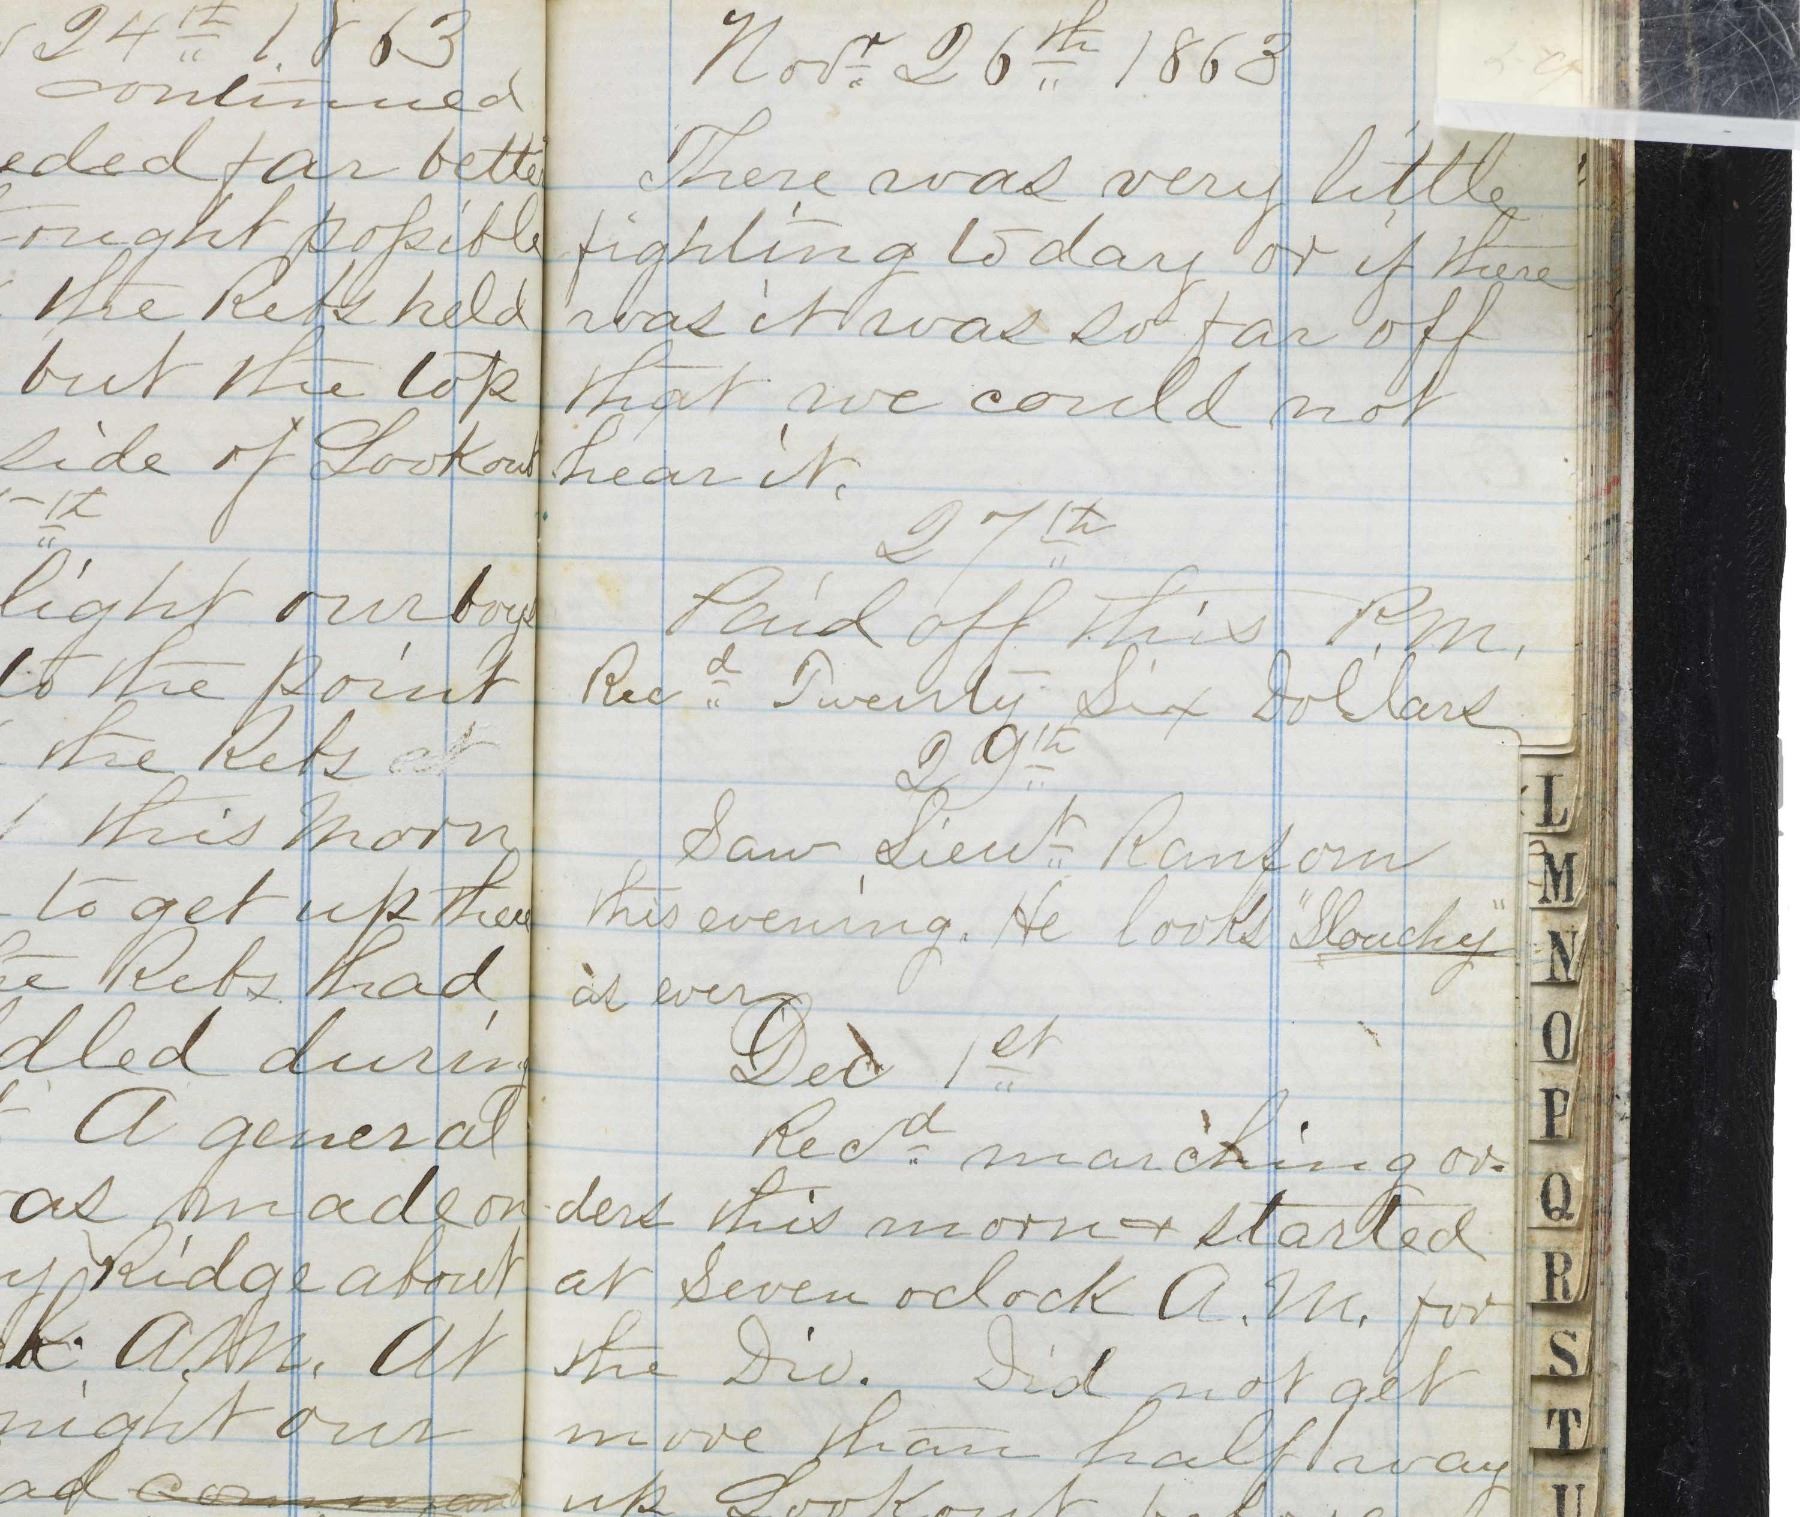 24th 1863
continued
eded far better
ought possible
the Rebs held
but the top
side of Lookout
th
light our boys
to the point
the Rebs at
this morn
to get up then
he Rebs had
dled during
A general
as made on
y Ridge about
k A.M. At
night our
ad
Novr 26th 1863
There was very little
fighting today or if there
was it was so far off
that we could not
hear it.
27th
Paid off this P.M.
Recd Twenty Six Dollars
29th
Saw Lieut Ransom
this evening. He looks "Slouchy"
as ever
Dec 1st
Recd marching or-
ders this morn + started
at Seven oclock A.M. for
the Div. Did not get
more than half way
up Lookout before
L
M
N
O
P
Q
R
S
T
U